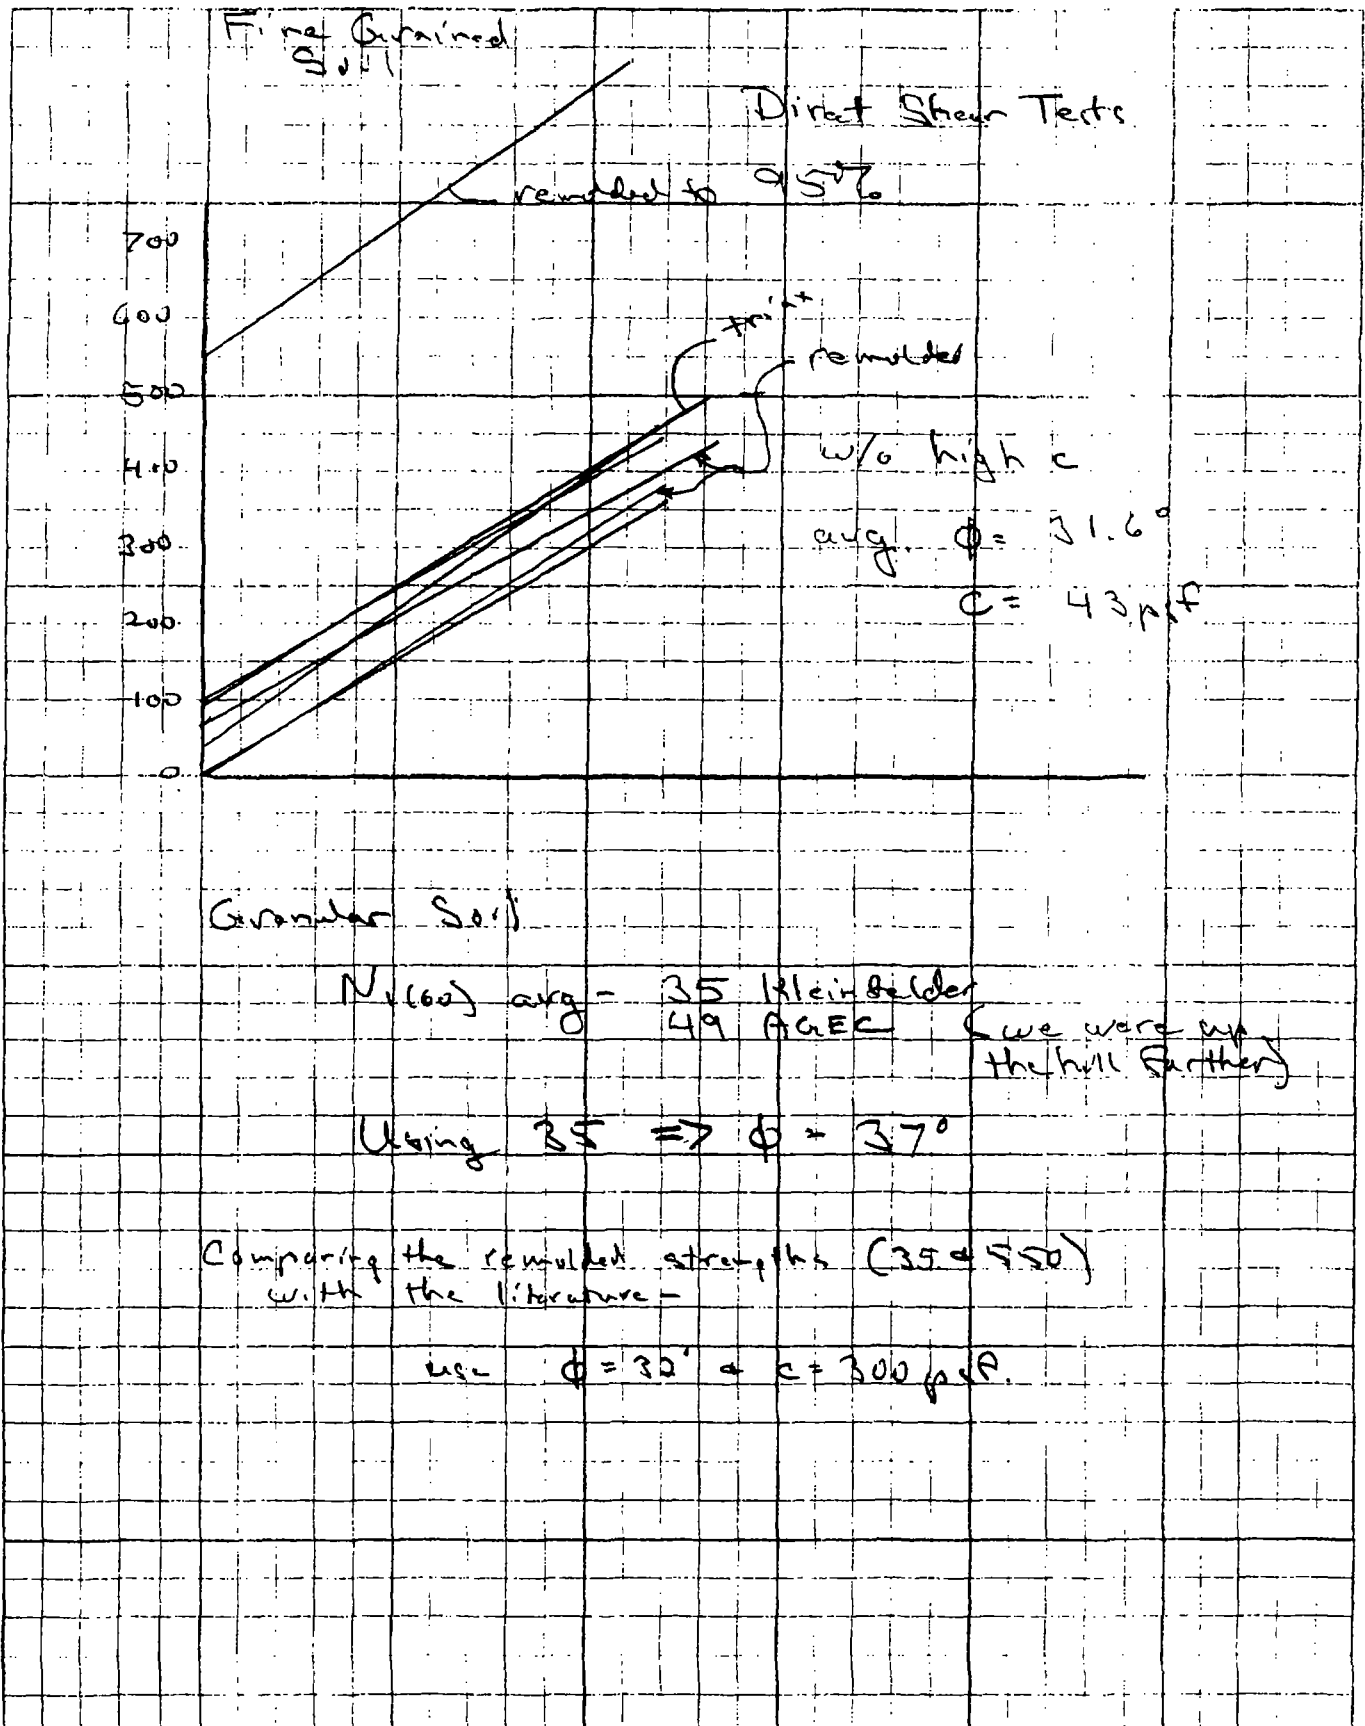 Fine Grained
Soil
Direct Shear Tests
remolded to 95%
700
600
500
400
300
200
100
0
remolded
w/o high c
avg. φ = 31.6°
c = 43 psf
Granular Soil
N1(60) avg - 35 Kleinfelder
49 AGEC (we were up
the hill further)
Using 35 => φ = 37°
Comparing the remolded strengths (35 & 550)
with the literature -
use φ = 32° & c = 300 psf.